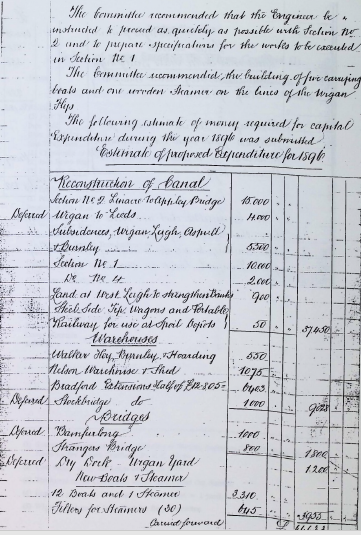 The Committee recommended that the Engineer be
instructed to proceed as quickly as possible with Section No
2 and to prepare specifications for the works to be executed
in Section No 1
The Committee recommended the building of five carrying
boats and one wooden Steamer on the lines of the Wigan
Flyer
The following estimate of money required for capital
Expenditure during the year 1896 was submitted
Estimate of proposed Expenditure for 1896
Reconstruction of Canal
Section No 2 to Appley Bridge 15.000
Deferred Wigan to Leeds 4.000
Subsidences, Wigan Leigh, Aspull
& Burnley 5300
Section No 1 10.000
Do No 4 2.000
Land at West Leigh to strengthen Banks 900
Steel Side Tip Wagons and Portable
Railway for use at Spoil Depots 50 37.450
Warehouses
Walker Hey, Burnley, & Hoarding 550
Nelson Warehouse & Shed 1075
Bradford Extensions Half of £12.805 = 6403
Deferred Stockbridge do 1000 9028
Bridges
Deferred Bamfurlong 1000
Strangers Bridge 800 1800
Deferred Dry Dock - Wigan Yard 1200
New Boats & Steamer
12 Boats and 1 Steamer 3.310
for Steamers (30) 645 3955
Carried forward £